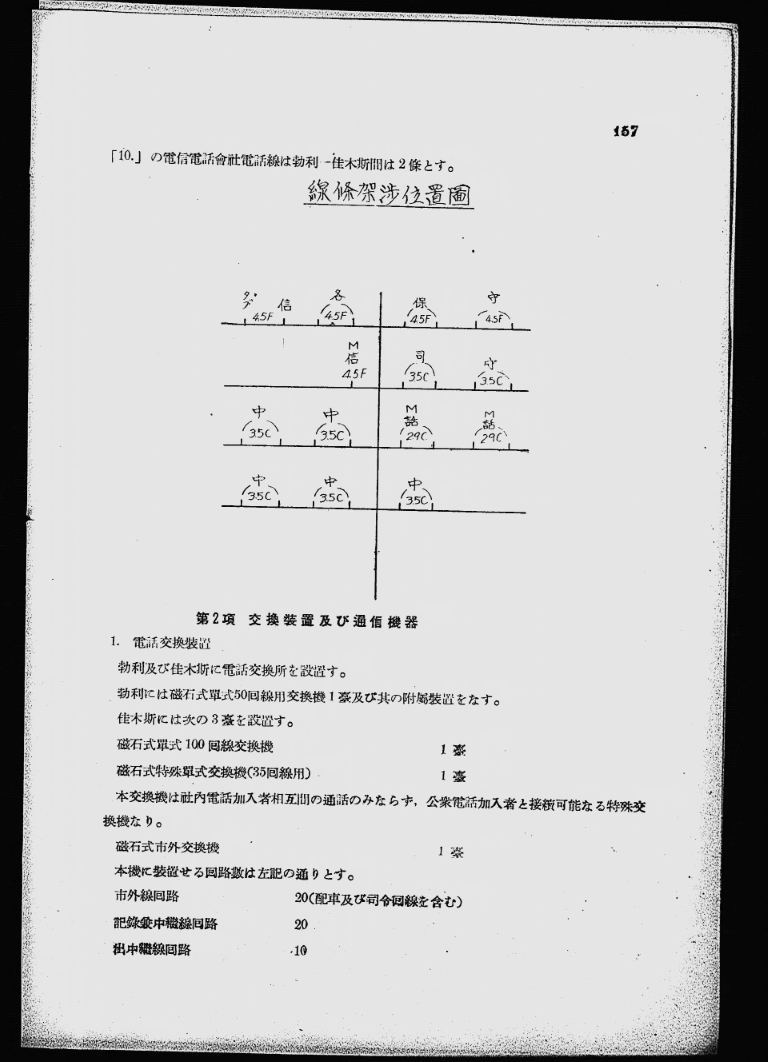 157
「10.」の電信電話會社電話線は勃利－佳木斯間は2條とす。
線條架渉位置圖
タブ 信 各 保 守
4.5F 4.5F 4.5F 4.5F
M信 司 守
4.5F 3.5C 3.5C
中 中 M話 M話
3.5C 3.5C 2.9C 2.9C
中 中 中
3.5C 3.5C 3.5C
第2項 交換裝置及び通信機器
1. 電話交換裝置
勃利及び佳木斯に電話交換所を設置す。
勃利には磁石式單式50回線用交換機1臺及び其の附屬裝置をなす。
佳木斯には次の3臺を設置す。
磁石式單式100回線交換機 1臺
磁石式特殊單式交換機(35回線用) 1臺
本交換機は社內電話加入者相互間の通話のみならず，公衆電話加入者と接續可能なる特殊交
換機なり。
磁石式市外交換機 1臺
本機に裝置せる回路數は左記の通りとす。
市外線回路 20(配車及び司令回線を含む)
記錄兼中繼線回路 20
出中繼線回路 10